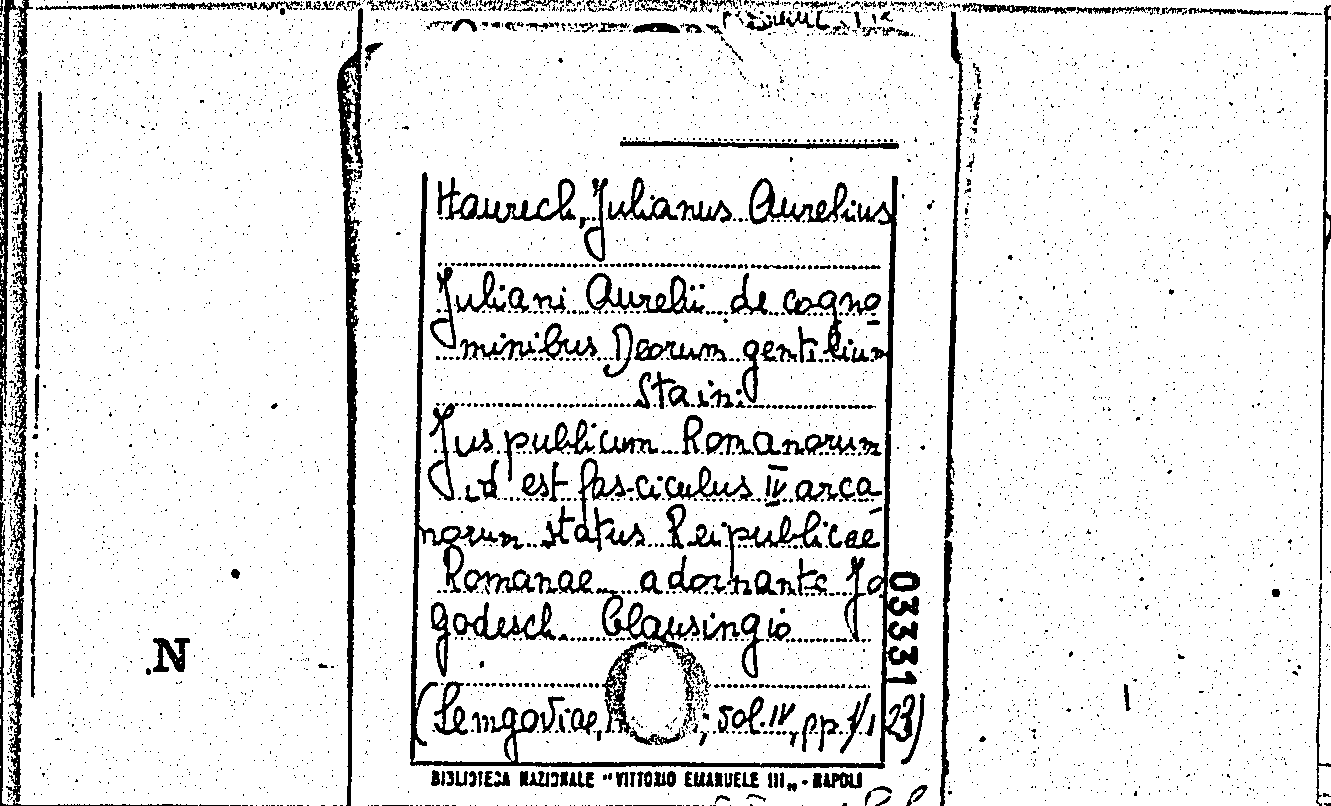 Haurech, Julianus Aurelius
Juliani Aurelii de cogno
minibus Deorum gentilium
Sta in:
Jus publicum Romanorum
id est fasciculus IV arca-
norum status Reipublicae
Romanae adornante Jo
Godesch. Clausingio
(Lemgoviae, ; vol. IV, pp. 1/123)
BIBLIOTECA NAZIONALE "VITTORIO EMANUELE III„ - NAPOLI
03331
N